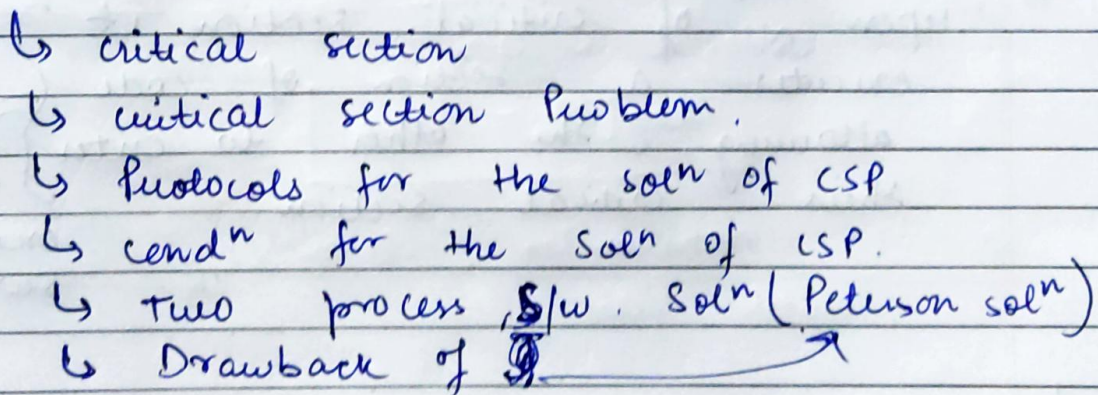 ↳ critical section
↳ critical section Problem.
↳ Protocols for the solⁿ of CSP
↳ condⁿ for the solⁿ of CSP.
↳ Two process, S/w. Solⁿ (Peterson solⁿ)
↳ Drawback of